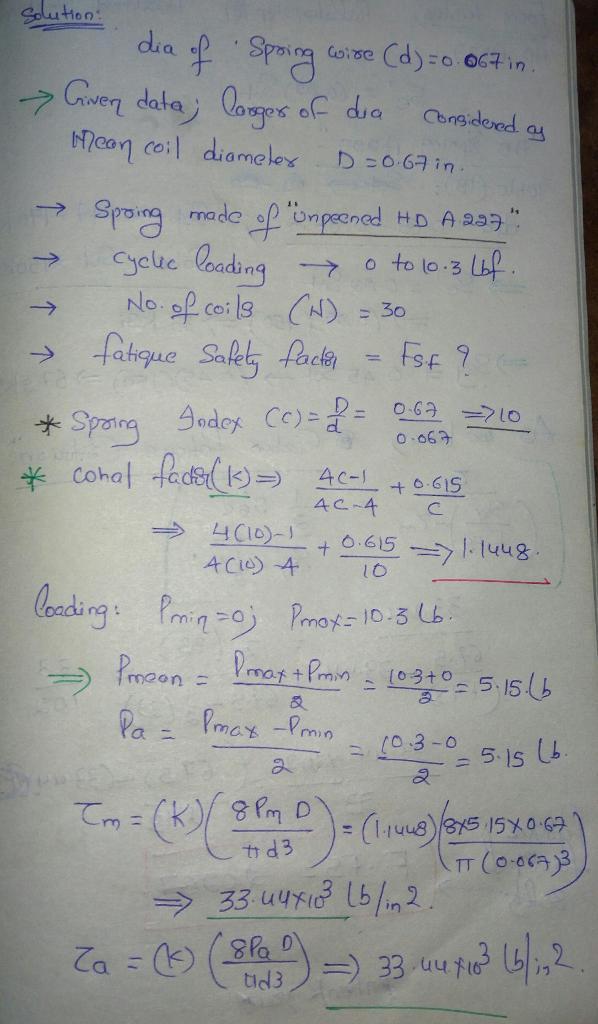 Solution:
dia of Spring wire (d) = 0.067 in.
→ Given data; larger of dia considered as
Mean coil diameter D = 0.67 in.
→ Spring made of "unpeened HD A 227".
→ cyclic loading → 0 to 10.3 lbf.
→ No. of coils (N) = 30
→ fatigue Safety factor = Fsf ?
* Spring Index (C) = D/d = 0.67/0.067 => 10
* cohal factor (K) => 4C-1/4C-4 + 0.615/C
=> 4(10)-1/4(10)-4 + 0.615/10 => 1.1448.
loading: Pmin = 0; Pmax = 10.3 lb.
=> Pmean = Pmax + Pmin/2 = 10.3+0/2 = 5.15 lb
Pa = Pmax - Pmin/2 = 10.3-0/2 = 5.15 lb.
τm = (K)(8 Pm D/πd3) = (1.1448)(8x5.15x0.67/π(0.067)3)
=> 33.44x10³ lb/in2.
τa = (K)(8Pa D/πd3) => 33.44x10³ lb/in2.